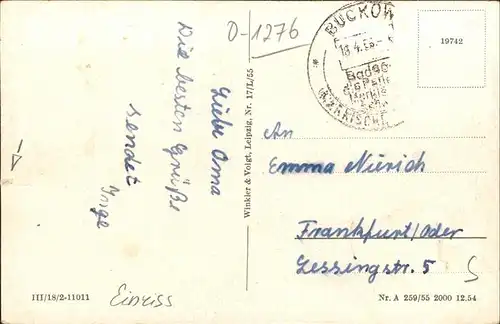 O-1276
BUCKOW
18.4.56
Badeo
MÄRKISCHE
19742
Liebe Oma
Die besten Grüße
sendet
Inge
Winkler & Voigt, Leipzig, Nr. 17/L/55
An
Emma Nürich
Frankfurt/Oder
Lessingstr. 5
III/18/2-11011
Einriss
Nr. A 259/55 2000 12.54